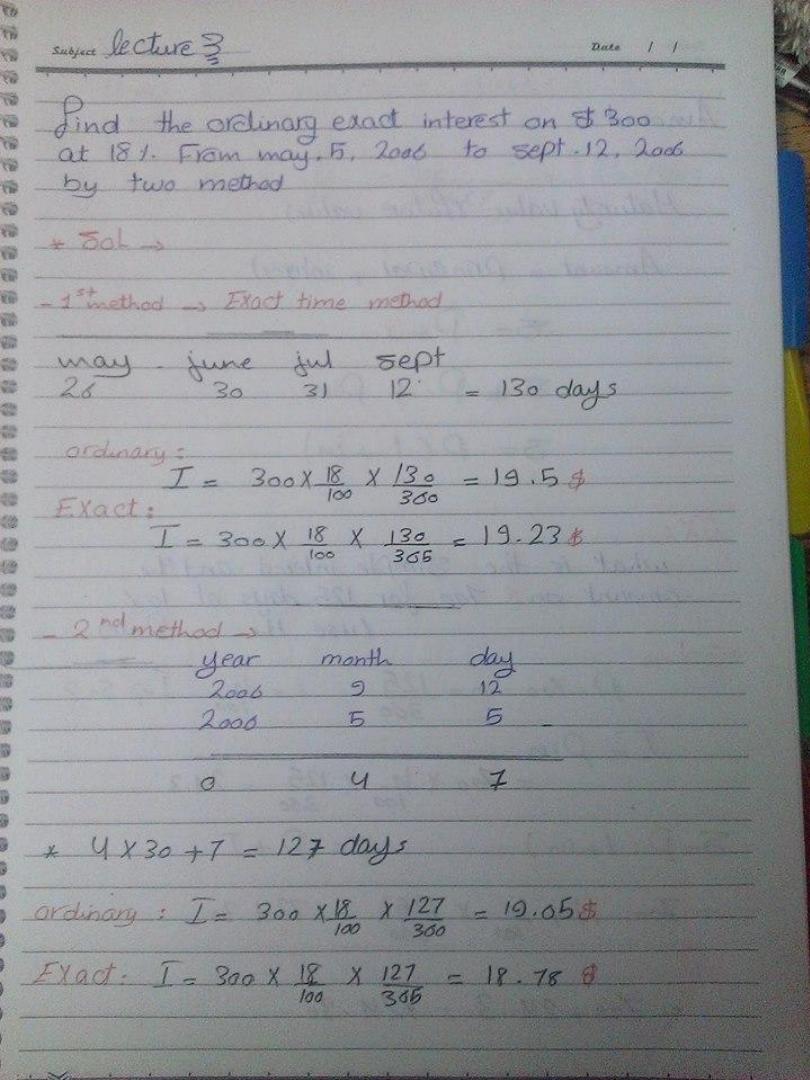 Subject lecture 3 Date / /
find the ordinary exact interest on $ 300
at 18 %. From may. 5, 2006 to sept. 12, 2006
by two method
* Sol →
- 1st method → Exact time method
may. june jul sept
26 30 31 12 = 130 days
ordinary:
I = 300 X 18/100 X 130/360 = 19.5 $
Exact:
I = 300 X 18/100 X 130/365 = 19.23 $
- 2nd method →
year month day
2006 9 12
2006 5 5 -
0 4 7
* 4 X 30 + 7 = 127 days
ordinary : I = 300 X 18/100 X 127/360 = 19.05 $
Exact. I = 300 X 18/100 X 127/365 = 18.78 $